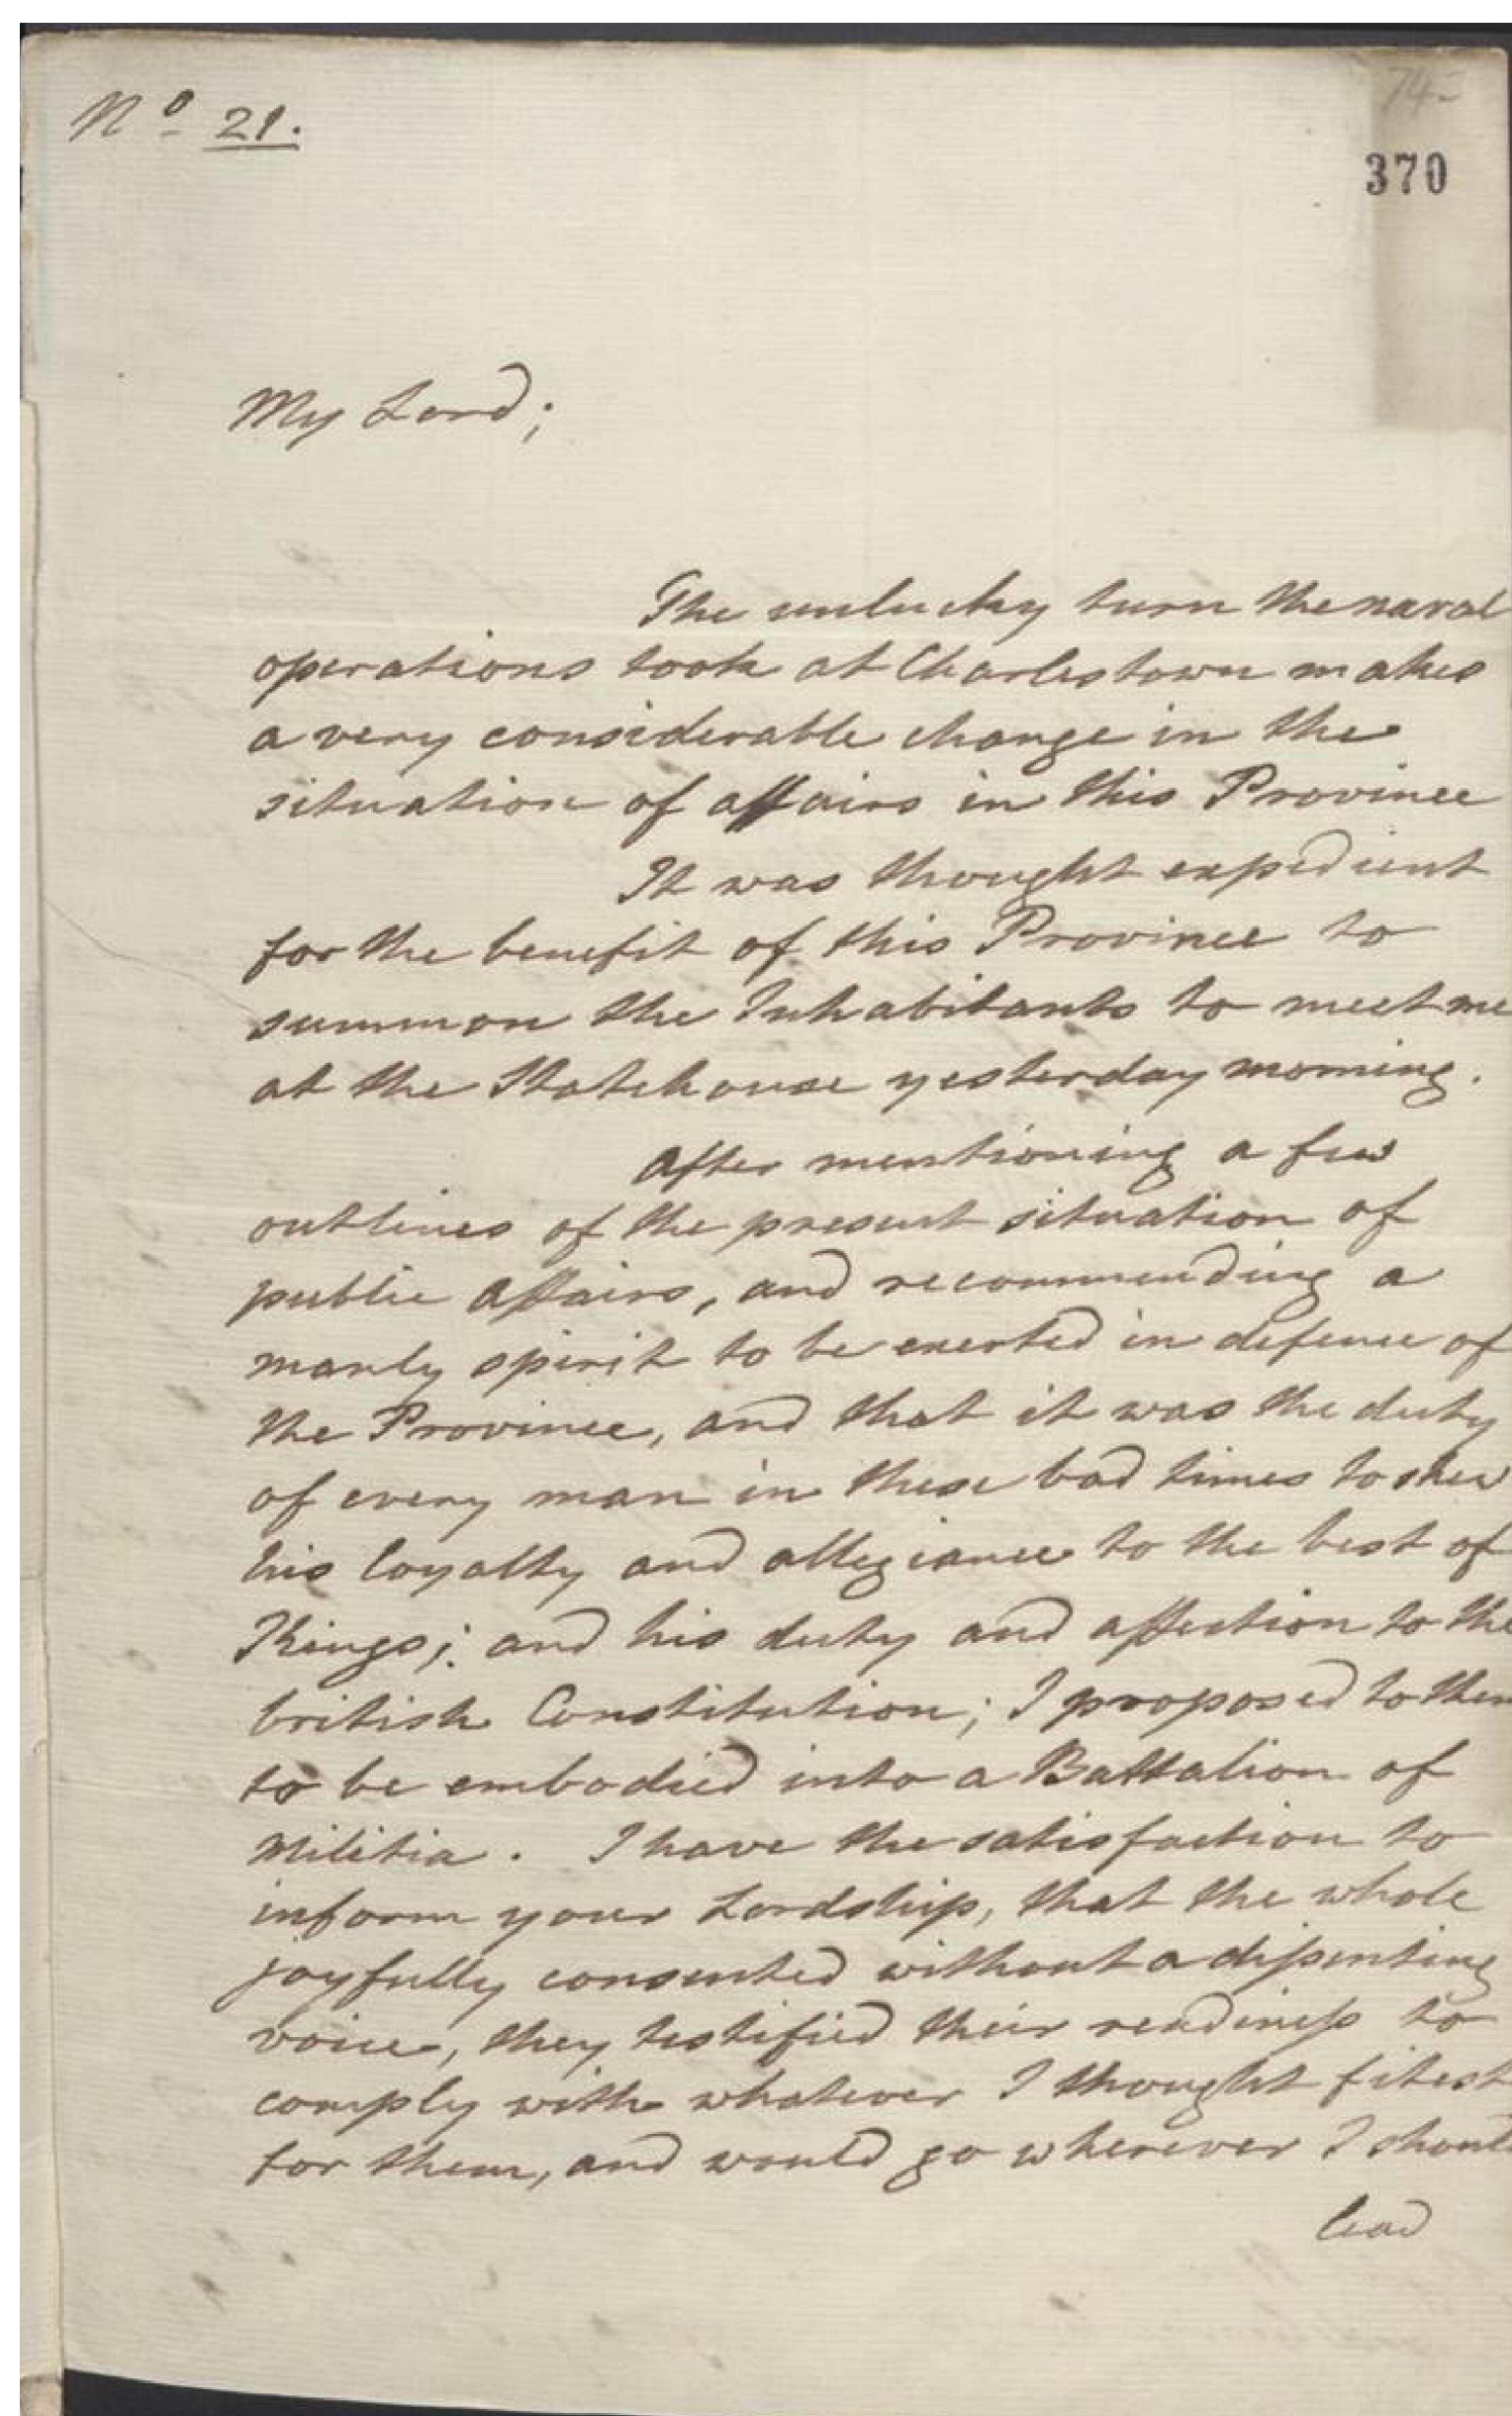 Nº 21.
74-
370
My Lord;
The unlucky turn the naval
operations took at Charlestown makes
a very considerable change in the
situation of affairs in this Province
It was thought expedient
for the benefit of this Province to
summon the Inhabitants to meet me
at the Statehouse yesterday morning.
After mentioning a few
outlines of the present situation of
public Affairs, and recommending a
manly spirit to be exerted in defence of
the Province, and that it was the duty
of every man in these bad times to shew
his loyalty and allegiance to the best of
Kings; and his duty and affection to the
british Constitution; I proposed to them
to be embodied into a Battalion of
Militia. I have the satisfaction to
inform your Lordship, that the whole
joyfully consented without a dissenting
voice, they testified their readiness to
comply with whatever I thought fitest
for them, and would go wherever I should
lead